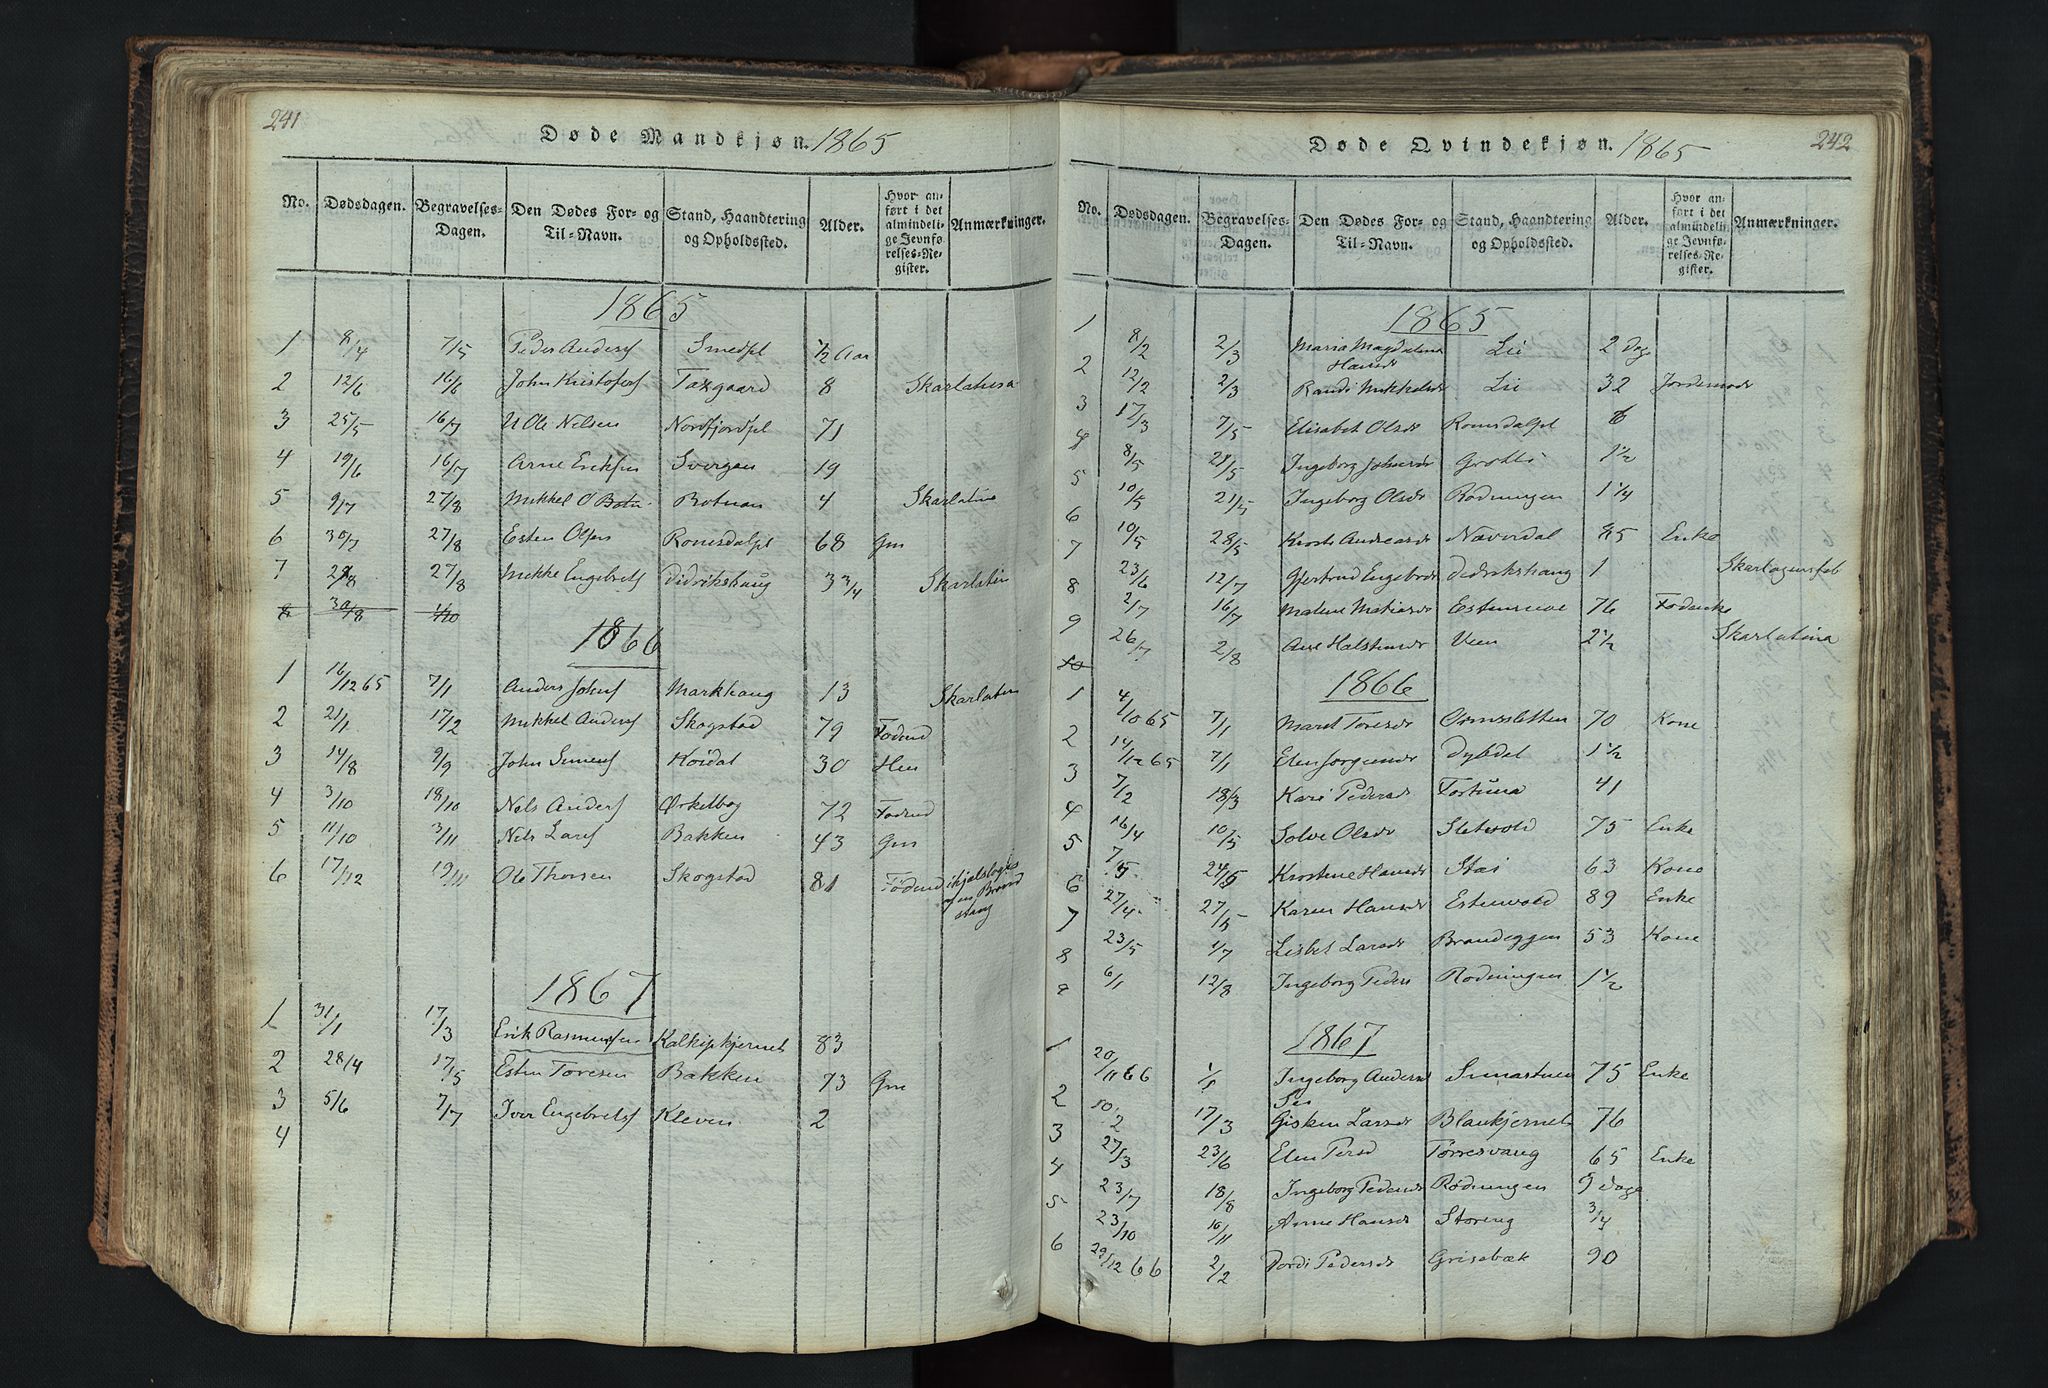 241
Døde Mandkjøn. 1865
No. Dødsdagen. Begravelses-Dagen. Den Dødes For- og Til-Navn. Stand, Haandtering og Opholdssted. Alder. Hvor anført i det almindelige Jevnførelses-Register. Anmærkninger.
1865
1 8/4 7/5 Peder Anders Smedpl 1/2 Aar
2 12/6 16/6 John Kristofers 8 Skarlatina
3 25/5 16/7 Ole Nelsen Nordfjordpl 71
4 19/6 16/7 Arne Eriksen 19
5 9/7 27/8 Mikkel O Botnan 4 Skarlatina
6 30/7 27/8 Esten Olsen Romsdalpl 68 Gm
7 27/8 Engebrets Didrikshaug 3 3/4 Skarlatin
8 30/8 1/10
1866
1 16/12 65 7/1 Anders Johns Markhaug 13 Skarlatin
2 21/1 17/2 Mikkel Anders Skogstad 79 Føderd
3 14/8 9/9 John Simens 30
4 3/10 18/10 Nels Anders 72 Føderd
5 11/10 3/11 Nels Lars Bakken 43 Gm
6 17/12 Ole Thorsen Skogstad 81 Føderd ihjelsloges af en Brøndstang
1867
1 31/1 17/3 Erik Rasmussen 83
2 28/4 17/5 Esten Toresen Bakken 73 Gm
3 5/6 7/7 Iver Engebrets Kleven 2
4
242
Døde Qvindekjøn. 1865
No. Dødsdagen. Begravelses-Dagen. Den Dødes For- og Til-Navn. Stand, Haandtering og Opholdssted. Alder. Hvor anført i det almindelige Jevnførelses-Register. Anmærkninger.
1865
1 8/2 2/3 Maria Magdalena Hansdr Lii 2 Dage
2 12/2 2/3 Randi Mikkelsdr Lii 32 Jordemoder
3 17/3 7/5 Elisabet Olsdr Romsdalpl 6
4 8/5 21/5 Ingeborg Johnsdr 1 1/2
5 10/5 21/5 Ingeborg Olsdr Rødningen 1 1/4
6 10/5 28/5 Andreasdr Næverdal 85 Enke
7 23/6 12/7 Gjertrud Engebrdr Didrikshaug 1 Skarlagensfeb
8 2/7 16/7 Malene Matiasdr 76 Føderenke
9 26/7 2/8 Ane Halstensdr Veen 2 1/2 Skarlatina
10
1866
1 4/10 65 7/1 Maret Toresdr 70 Kone
2 14/12 65 7/1 Elen Jorgensdr Dybdal 1 1/2
3 7/2 18/3 Kari Pedersdr Fortuna 41
4 16/4 10/5 Solve Olsdr Sletvold 75 Enke
5 7/5 24/5 Hansdr Stai 63 Kone
6 27/4 27/5 Karen Hansdr Estenvold 89 Enke
7 23/5 1/7 Lisbet Larsdr Brandeggen 53 Kone
8 6/1 12/8 Ingeborg Peders Rødningen 1 1/2
9
1867
1 20/11 66 Ingeborg Andersdr 75 Enke
2 2 17/3 Gisken Larsdr Blankjernet 76
3 27/3 23/6 Elen Persd Tørresvang 65 Enke
4 23/7 18/8 Ingeborg Pedersdr Rødningen 9 Dage
5 23/10 10/11 Anne Hansdr Storeng 3/4
6 29/12 66 2/2 Dordi Pedersdr Grisebæk 90